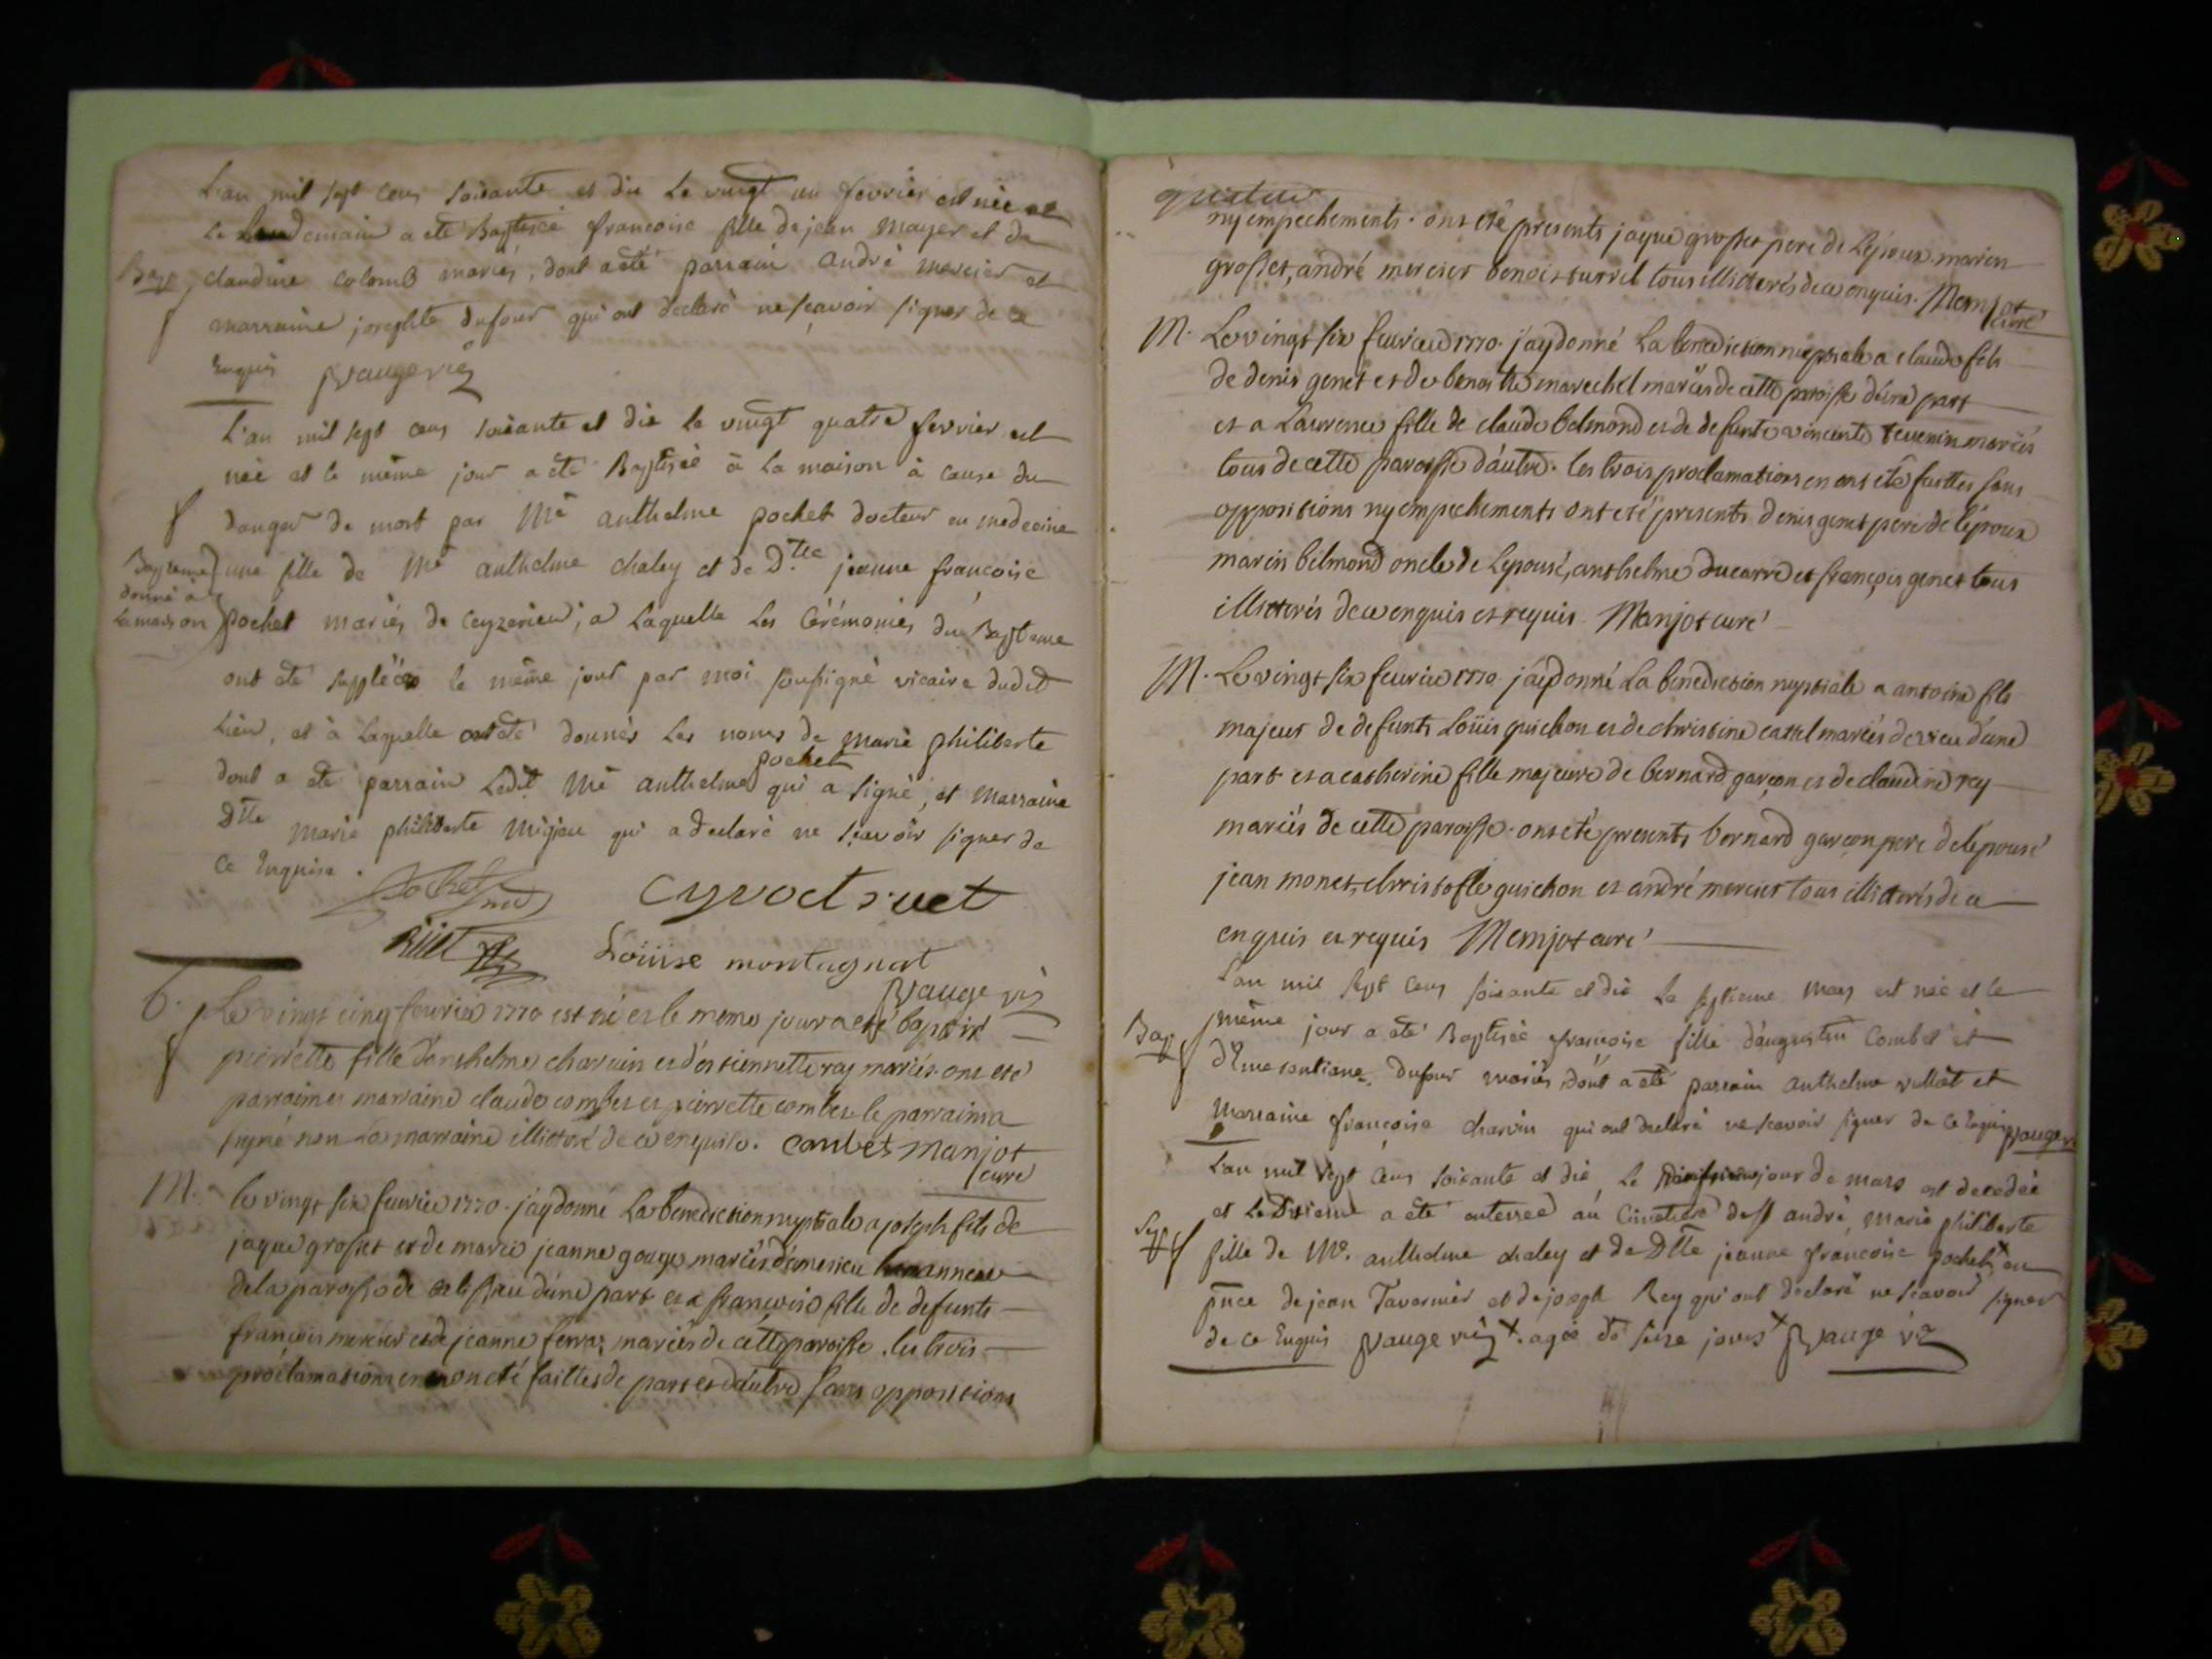 L'an mil sept cens soixante et dix le vingt un fevrier est née et
le lendemain a été Baptisée françoise fille de jean mayer et de
Bapt claudine colomb mariés, dont a été parrain andré mercier et
marraine josephte dufour qui ont declaré ne sçavoir signer de ce
Enquis Vauge vic
L'an mil sept cens soixante et dix le vingt quatre fevrier est
née et le même jour a été Baptisée à la maison à cause du
danger de mort par Me anthelme pochet docteur en medecine
Bapteme donné a la maison
une fille de Me anthelme chaley et de Dlle jeanne françoise
pochet mariés de ceyzerieu, a laquelle les Cérémonies du Bapteme
ont été supplées le même jour par moi soussigné vicaire dudit
Lieu, et à laquelle ont été donnés les noms de marie philiberte
dont a été parrain Ledit Me anthelme pochet qui a signé, et marraine
Dlle marie philiberte migieu qui a declaré ne sçavoir signer de
ce Enquise.
Pochet med cyvoct ruet
Rüet Loüise montagnat
Vauge vic
b. Le vingt cinq feurier 1770 est né et le meme jour a eté baptisé
pierrette fille d'anthelme charvin et d'estiennette ray mariés. ont eté
parrain et marraine claude combet et pierrette combet le parrain a
signé non la marraine illitteré de ce enquise. combet Manjot
curé
M. le vingt six feurier 1770. j'ay donné La benediction nuptiale a joseph fils de
jaque grosset et de marie jeanne gouge mariés d'
de la paroisse de d'une part et a françoise fille de defunts
françois mercier et de jeanne ferraz mariés de cette paroisse. les trois
proclamations en ont eté faittes de part et d'autre sans oppositions
ny empechements. ont eté presents jaque grosset pere de L'epoux. marin
grosset, andré mercier benoist turrel tous illitterés de ce enquis. Manjot
curé
M. Le vingt six feurier 1770. j'ay donné La benediction nuptiale a claude fils
de denis genet et de benoite marechel mariés de cette paroisse d'une part
et a Laurence fille de claude belmond et de defunte vincente tevenin mariés
tous de cette paroisse d'autre. les trois proclamations en ont eté faittes sans
oppositions ny empechements ont eté presents denis genet pere de l'époux
marin belmond oncle de L'epouse, anthelme ducarre et françois genet tous
illitterés de ce enquis et requis. Manjot curé
M. Le vingt six feurier 1770 j'ay donné La benediction nuptiale a antoine fils
majeur de defunts Loüis guichon et de christine cattel mariés de d'une
part et a catherine fille majeure de bernard garçon et de claudine rey
mariés de cette paroisse. ont eté presents bernard garçon pere de l'epouse
jean monet, christofle guichon et andré mercier tous illitterés de ce
enquis et requis Manjot curé
L'an mil sept cens soixante et dix le septieme mars est née et le
Bap même jour a été Baptisée françoise fille d'augustin Combet et
d'Emerantiane dufour mariés, dont a été parrain anthelme vullet et
Marraine françoise charvin qui ont declaré ne sçavoir signer de ce Enquis Vauge vic
L'an mil sept cens soixante et dix le jour de mars est decedée
et le a été enterrée au cimetiere de St andré, marie philiberte
Sep fille de Me. anthelme chaley et de Dlle jeanne françoise pochet x en
pnce de jean Tavernier et de joseph Rey qui ont declaré ne sçavoir signer
de ce Enquis Vauge vic x. agée de seize jours x Vauge vic